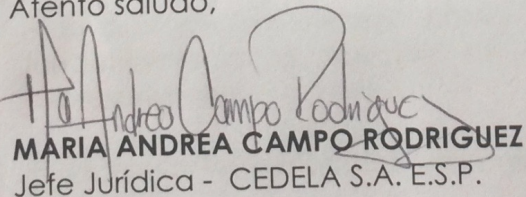 Atento saludo,
Ma Andrea Campo Rodriguez
MARIA ANDREA CAMPO RODRIGUEZ
Jefe Jurídica - CEDELA S.A. E.S.P.